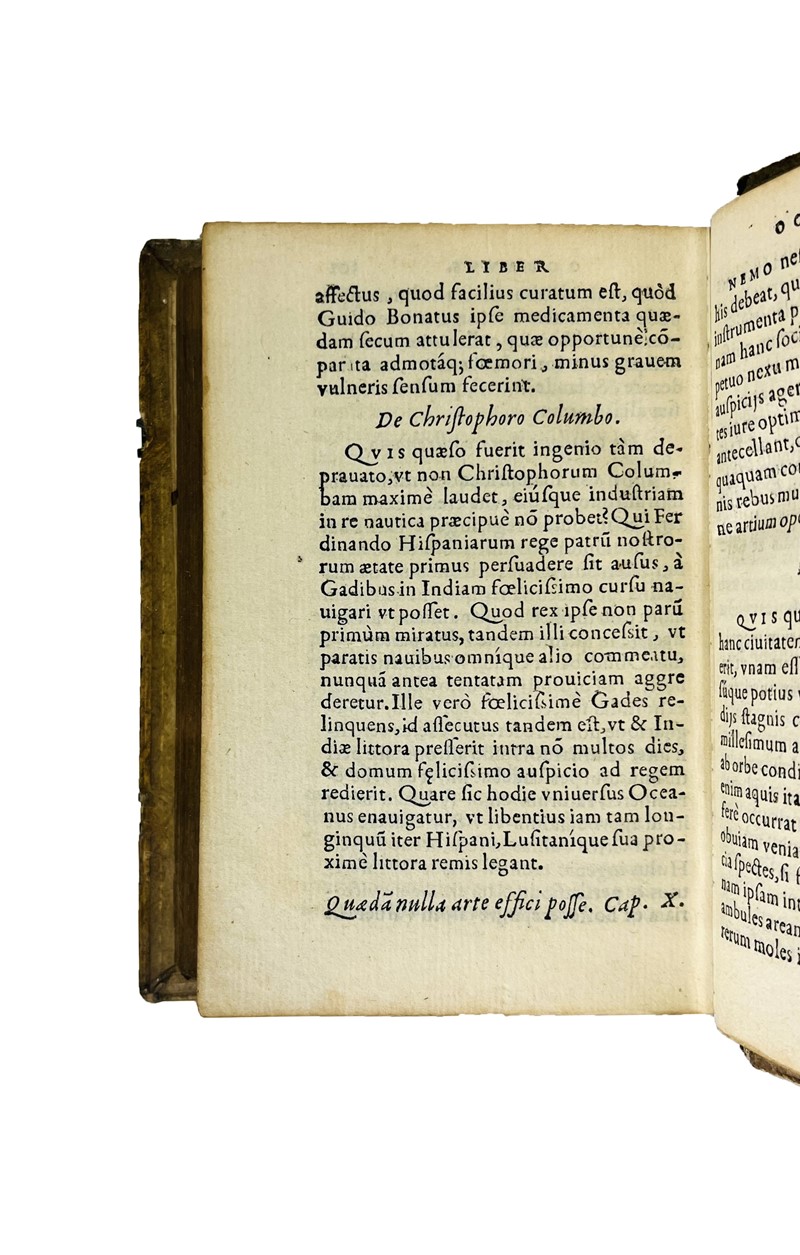 LIBER
affectus, quod facilius curatum eſt, quòd
Guido Bonatus ipſe medicamenta quæ-
dam ſecum attulerat, quæ opportunè cō-
parata admotáq; fœmori, minus grauem
vulneris ſenſum fecerint.
De Chriſtophoro Columbo.
QVIS quæſo fuerit ingenio tàm de-
prauato, vt non Chriſtophorum Colum-
bam maximè laudet, eiúſque induſtriam
in re nautica præcipuè nō probet? Qui Fer
dinando Hiſpaniarum rege patrū noſtro-
rum ætate primus perſuadere ſit auſus, à
Gadibus in Indiam fœliciſsimo curſu na-
uigari vt poſſet. Quod rex ipſe non parū
primùm miratus, tandem illi conceſsit, vt
paratis nauibus omníque alio commeatu,
nunquā antea tentatam prouiciam aggre
deretur. Ille verò fœliciſsimè Gades re-
linquens, id aſſecutus tandem eſt, vt & In-
diæ littora preſſerit intra nō multos dies,
& domum fęliciſsimo auſpicio ad regem
redierit. Quare ſic hodie vniuerſus Ocea-
nus enauigatur, vt libentius iam tam lon-
ginquū iter Hiſpani, Luſitaníque ſua pro-
ximè littora remis legant.
Quædā nulla arte effici poſſe. Cap. X.
NEMO
his debeat,
inſtrumenta
nam hanc
petuo nexu
auſpicijs
tes iure
antecellant,
quaquam
nis rebus
ne artium
QVIS
hanc
erit, vnam
ſúque potius
dijs ſtagnis
milleſimum
ab orbe
enim aquis ita
ferè occurrat
obuiam
cia ſpectes, ſi
nam ipſam
ambules
rerum moles